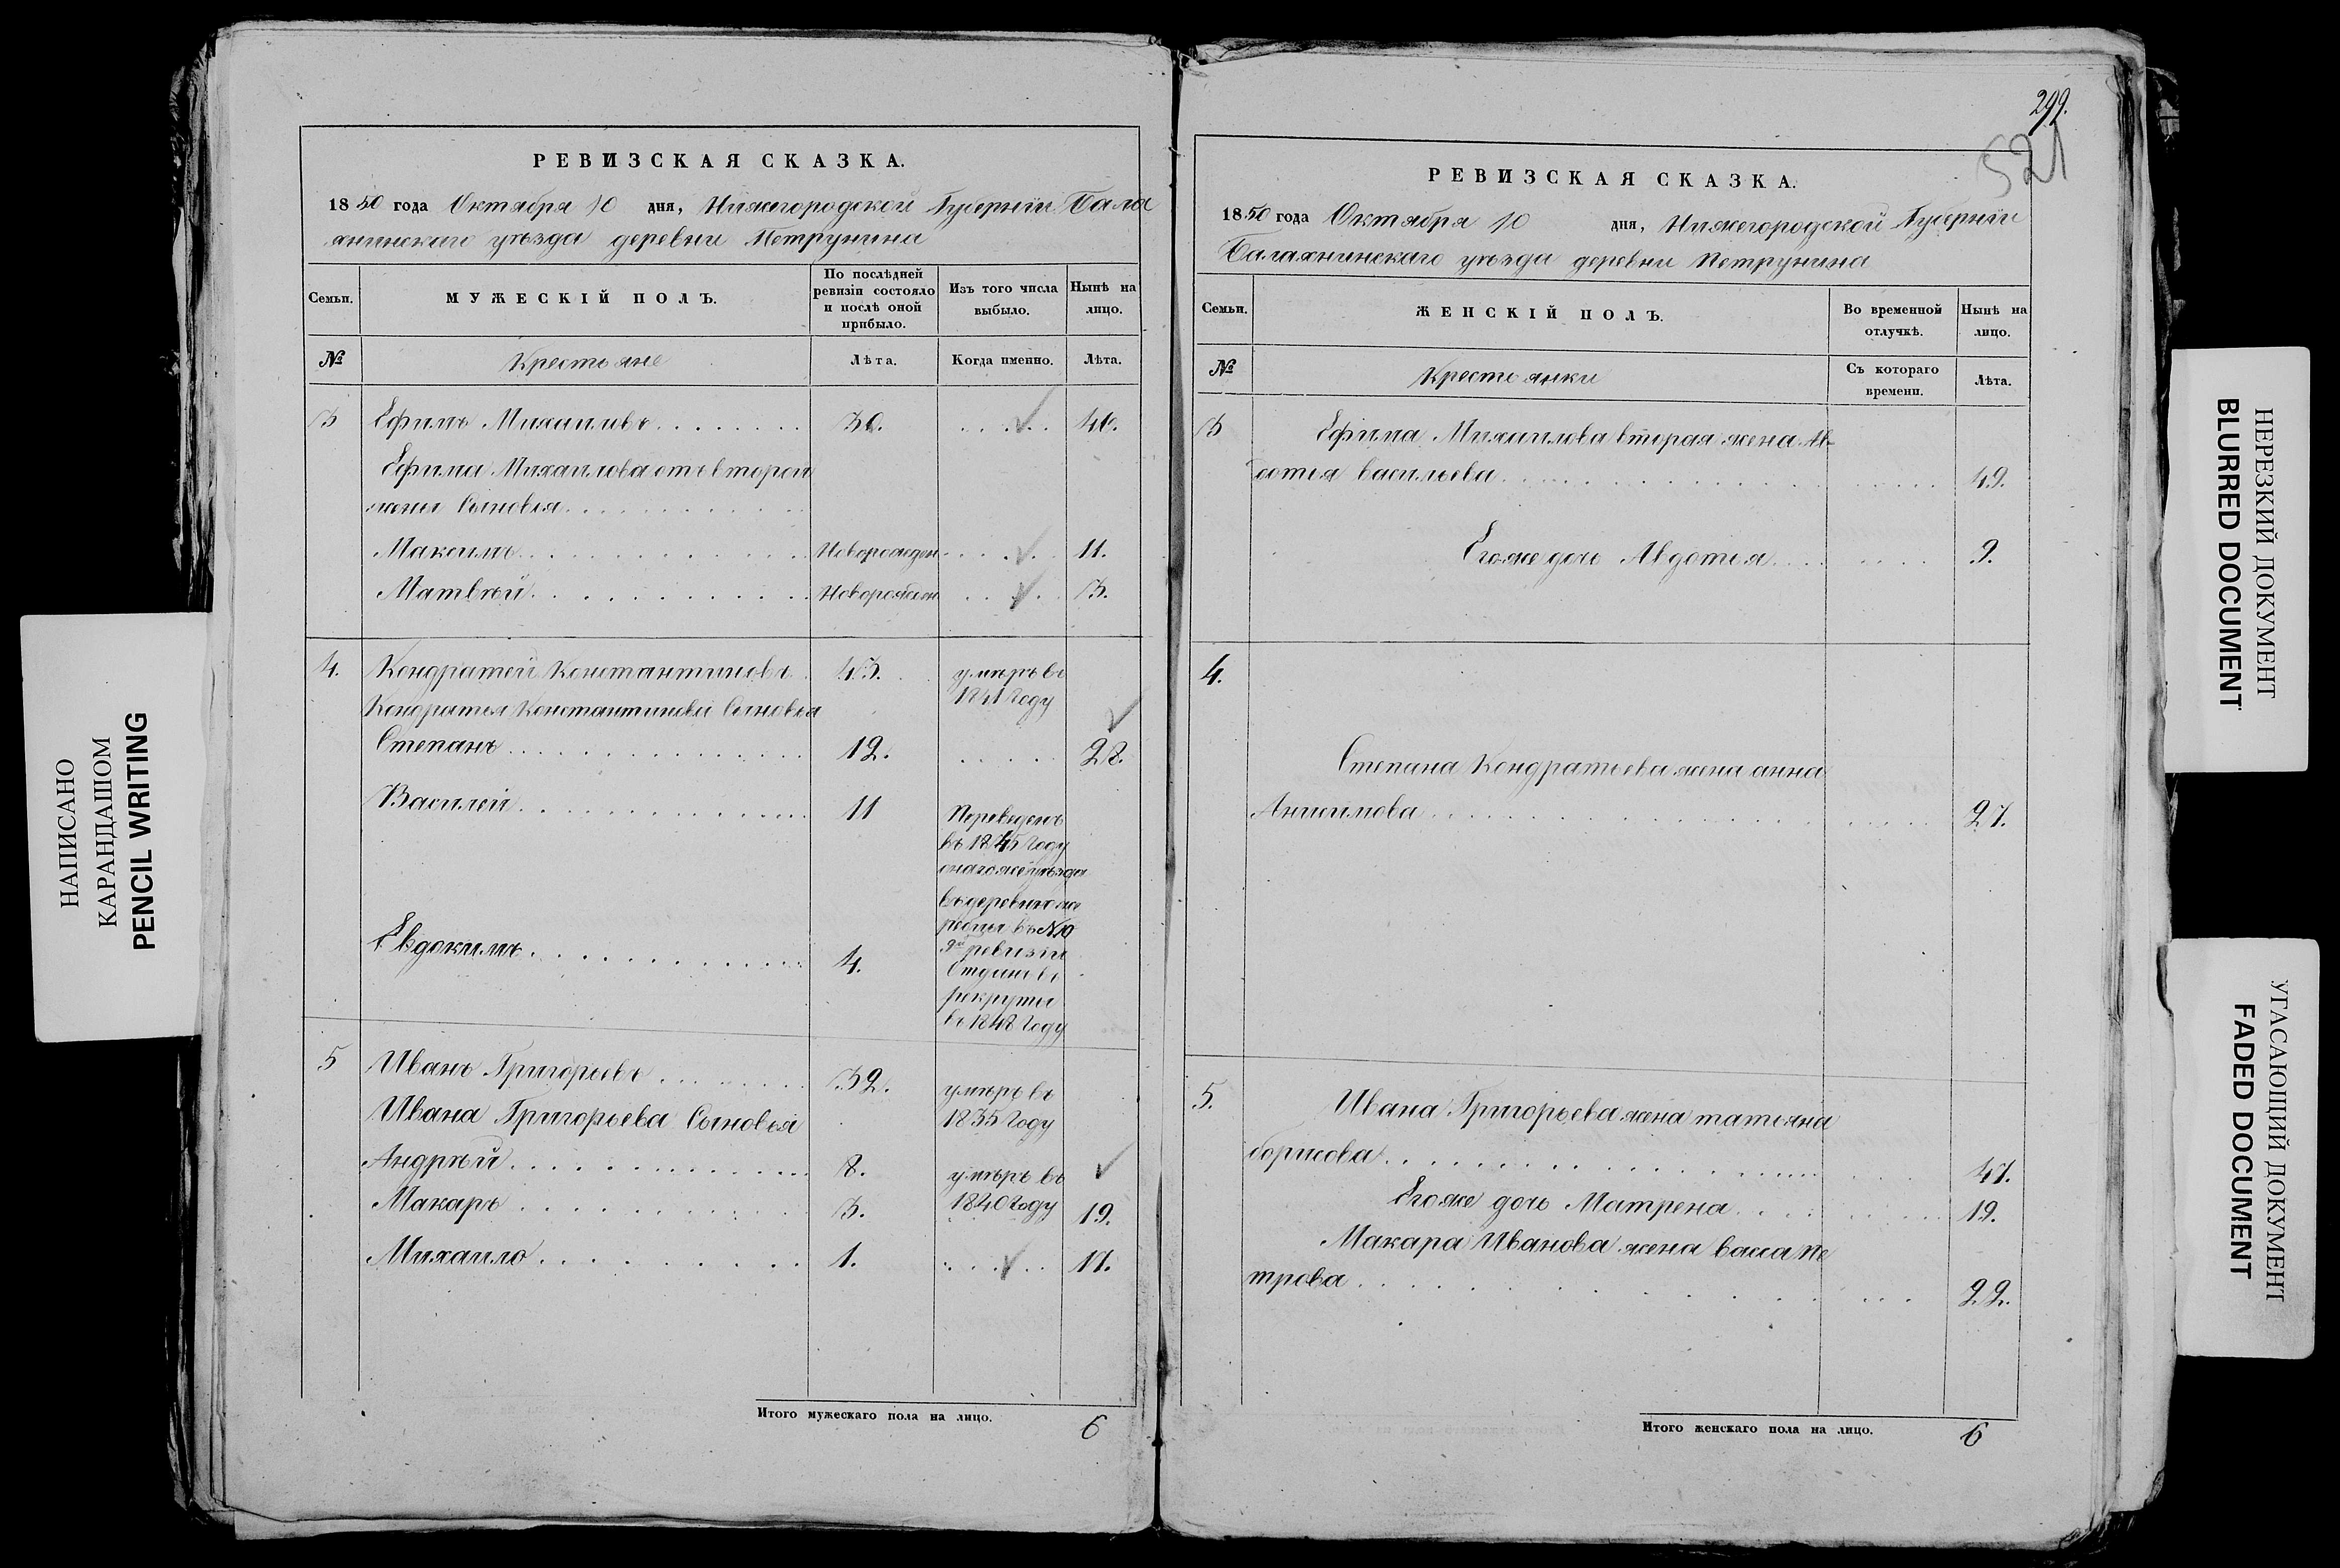 НАПИСАНО
КАРАНДАШОМ
PENCIL WRITING
РЕВИЗСКАЯ СКАЗКА.
1850 года Октября 10 дня, Нижегородской Губерніи Бала
хнинскаго уѣзда деревни Петрунина
Семьи.
МУЖЕСКІЙ ПОЛЪ.
По послѣдней ревизіи состояло и послѣ оной прибыло.
Изъ того числа выбыло.
Нынѣ на лицо.
№
Крестьяне
Лѣта.
Когда именно.
Лѣта.
3 Ефимъ Михаиловъ 30. 46.
Ефима Михаилова отъ второй
жены Сыновья
Максимъ Новорожден 11.
Матвѣй Новорожден 3.
4. Кондратей Константиновъ 43. умеръ въ
1841 году
Кондратья Константинова Сыновья
Степанъ 12. 28.
Василей 11 Переведенъ
въ 1845 году
онаго же уѣзда
въ деревню
въ №
9й ревизіи
Евдокимъ 4. Отданъ въ
рекруты
въ 1848 году
5 Иванъ Григорьевъ 32. умеръ въ
1835 году
Ивана Григорьева Сыновья
Андрѣй 8. умеръ въ
1840 году
Макаръ 3. 19.
Михаило 1. 17.
Итого мужескаго пола на лицо. 6
299.
521
РЕВИЗСКАЯ СКАЗКА.
1850 года Октября 10 дня, Нижегородской Губерніи
Балахнинскаго уѣзда деревни Петрунина
Семьи.
ЖЕНСКІЙ ПОЛЪ.
Во временной отлучкѣ.
Нынѣ на лицо.
№
Крестьянки
Съ котораго времени.
Лѣта.
3 Ефима Михаилова вторая жена Ав
дотья васильева 49.
Его же дочь Авдотья 9.
4.
Степана Кондратьева жена анна
Анисимова 27.
5. Ивана Григорьева жена татьяна
борисова 47.
Его же дочь Матрена 19.
Макара Иванова жена васа Пе
трова 22.
Итого женскаго пола на лицо. 6
НЕРЕЗКИЙ ДОКУМЕНТ
BLURRED DOCUMENT
УГАСАЮЩИЙ ДОКУМЕНТ
FADED DOCUMENT